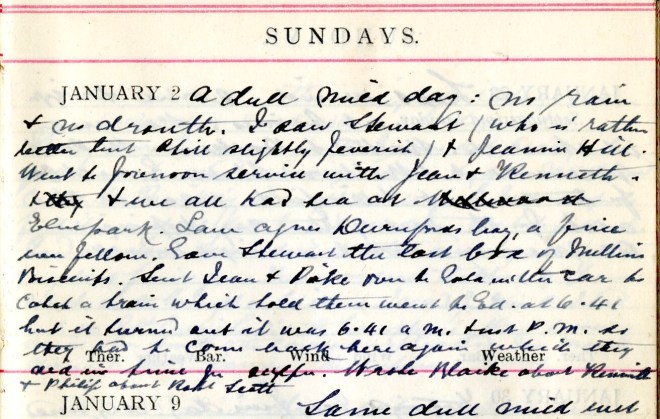 SUNDAYS.
JANUARY 2 A dull mild day: no rain
& no drouth. I saw Stewart (who is rather
better but still slightly feverish) & Jeannie Hill.
Went to forenoon service with Jean & Kenneth.
& we all had tea at
Elmpark. Saw Agnes boy, a fine
wee fellow. Gave Stewart the last box of
Biscuits. Sent Jean & over to in the car to
catch a train which told them went to Ed. at 6.41
but it turned out it was 6.41 a.m. & not p.m. so
they had to come back here again which they
Ther. Bar. Wind Weather
did in time for Wrote Blackie about Kenneth
& Philip about Scott
JANUARY 9 Same dull mild